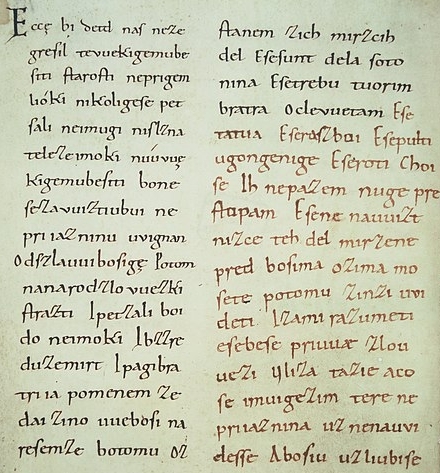 Ecce bi detd naſ neze
greſil tevuekigemube
ſiti ſtaroſti neprigem
lióki nikoligeſe pet
ſali neimugi niſlzna
telezeimoki nuúvuę
kigemubeſiti bone
ſezavuiztiubui ne
priiazninu uvignan
Odszlauuiboſige Potom
nanarodzlovuezki
ſtrazti Ipetzali boi
do neimoki Ibzzre
duzemirt Ipagibra
triia pomenem ze
dai zino uuebosi na
reſemze botomu oz
ſtanem zich mirzcih
del Eſeſunt dela ſoto
nina Eſetrebu tuorim
bratra Oclevuetam Eſe
tatua Eſeraszboi Eſepulti
ugongenige Eſeroti Choi
ſe Ih nepazem nuge pre
ſtopam Eſene nauuizt
nizce teh del mirzene
pred boſima ozima mo
ſete potomu zinzi uvi
deti Izami razumeti
eſebeſe priuuæ zlou
uezi Uliza tazie aco
ſe imuigezim tere ne
priiaznina uznenauvi
deſſe Aboſiu uzliubiſe